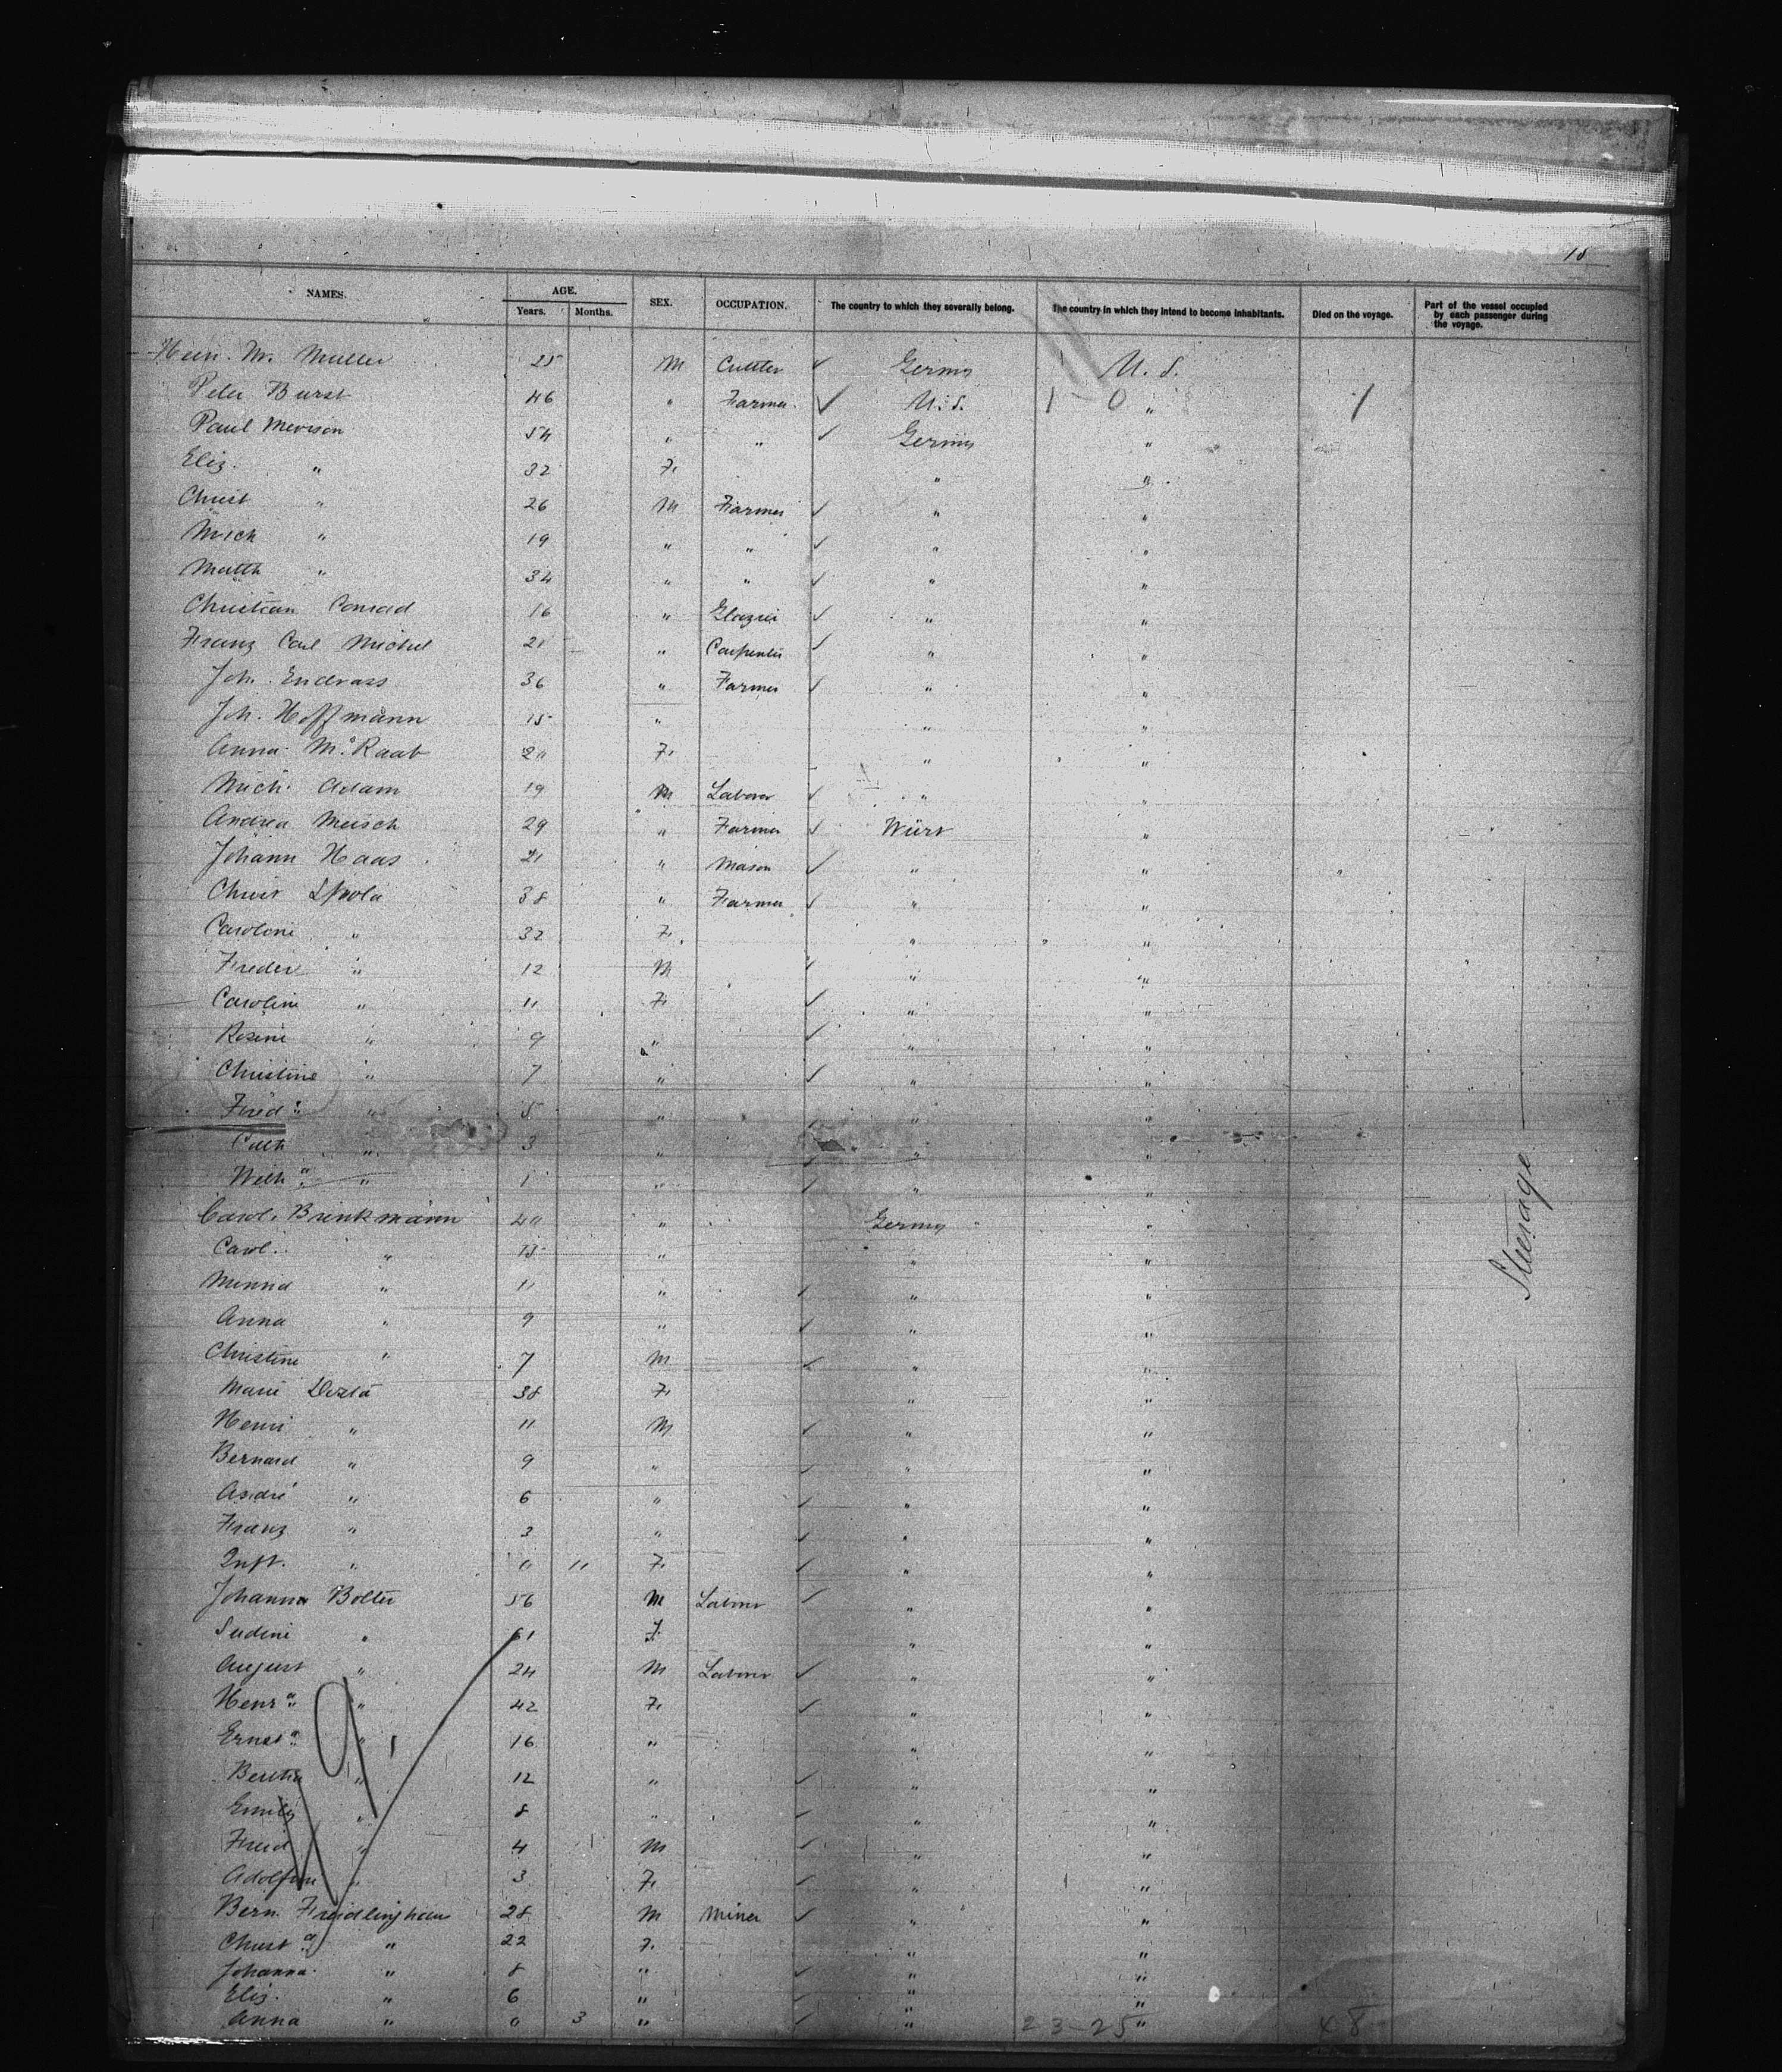 18
NAMES. AGE. SEX. OCCUPATION. The country to which they severally belong. The country in which they intend to become inhabitants. Died on the voyage. Part of the vessel occupied by each passenger during the voyage.
Years. Months.
Hein. M. Muller 25 M Cuttler ✓ Germy U. S.
Peter Burst 46 " Farmer ✓ U. S. 1 0 " 1
Paul 54 " " ✓ Germy "
Eliz. " 32 F. " "
Christ " 26 M Farmer ✓ " "
Mich " 19 " " ✓ " "
Matth " 34 " " ✓ " "
Christian Conrad 16 " Glazier ✓ " "
Franz Carl Michel 21 " Carpenter ✓ " "
Joh. Endrass 36 " Farmer ✓ " "
Joh. Hoffmann 15 " " "
Anna Ma Raab 20 F. " "
Mich. Adam 19 M Labour ✓ " "
Andrea Meisch 29 " Farmer ✓ Würt "
Johann Haas 21 " Mason ✓ " "
Christ 38 " Farmer ✓ " "
Caroline " 32 F. " "
Freder " 12 M ✓ " "
Caroline " 11 F. ✓ " "
Rosine " 9 " ✓ " "
Christine " 7 " ✓ " "
Fred " 5 " ✓ " "
Cath " 3 " ✓ " "
Wilha " 1 " ✓ " "
Carol. Brinkmann 40 " Germy "
Carol. " 15 " " "
Minna " 11 " ✓ " "
Anna " 9 " ✓ " "
Christine " 7 M ✓ " "
Marie 38 F. " "
Henri " 11 M ✓ " "
Bernard " 9 " ✓ " "
André " 6 " ✓ " "
Franz " 3 " ✓ " "
Inft. " 0 11 F. ✓ " "
Johann Bolter 56 M Labour ✓ " "
" 61 F. " "
August " 24 M Labour ✓ " "
Henra " 42 F. ✓ " "
Ernsta " 16 " " "
Bertha " 12 " ✓ " "
Emily " 8 " ✓ " "
Fried " 4 M ✓ " "
Adolfine " 3 F. ✓ " "
Bern. 28 M Miner ✓ " "
Christa " 22 F. " "
Johanna " 8 " ✓ " "
Eliz. " 6 " ✓ " "
Anna " 0 3 " ✓ " "
23-25 48
Steerage